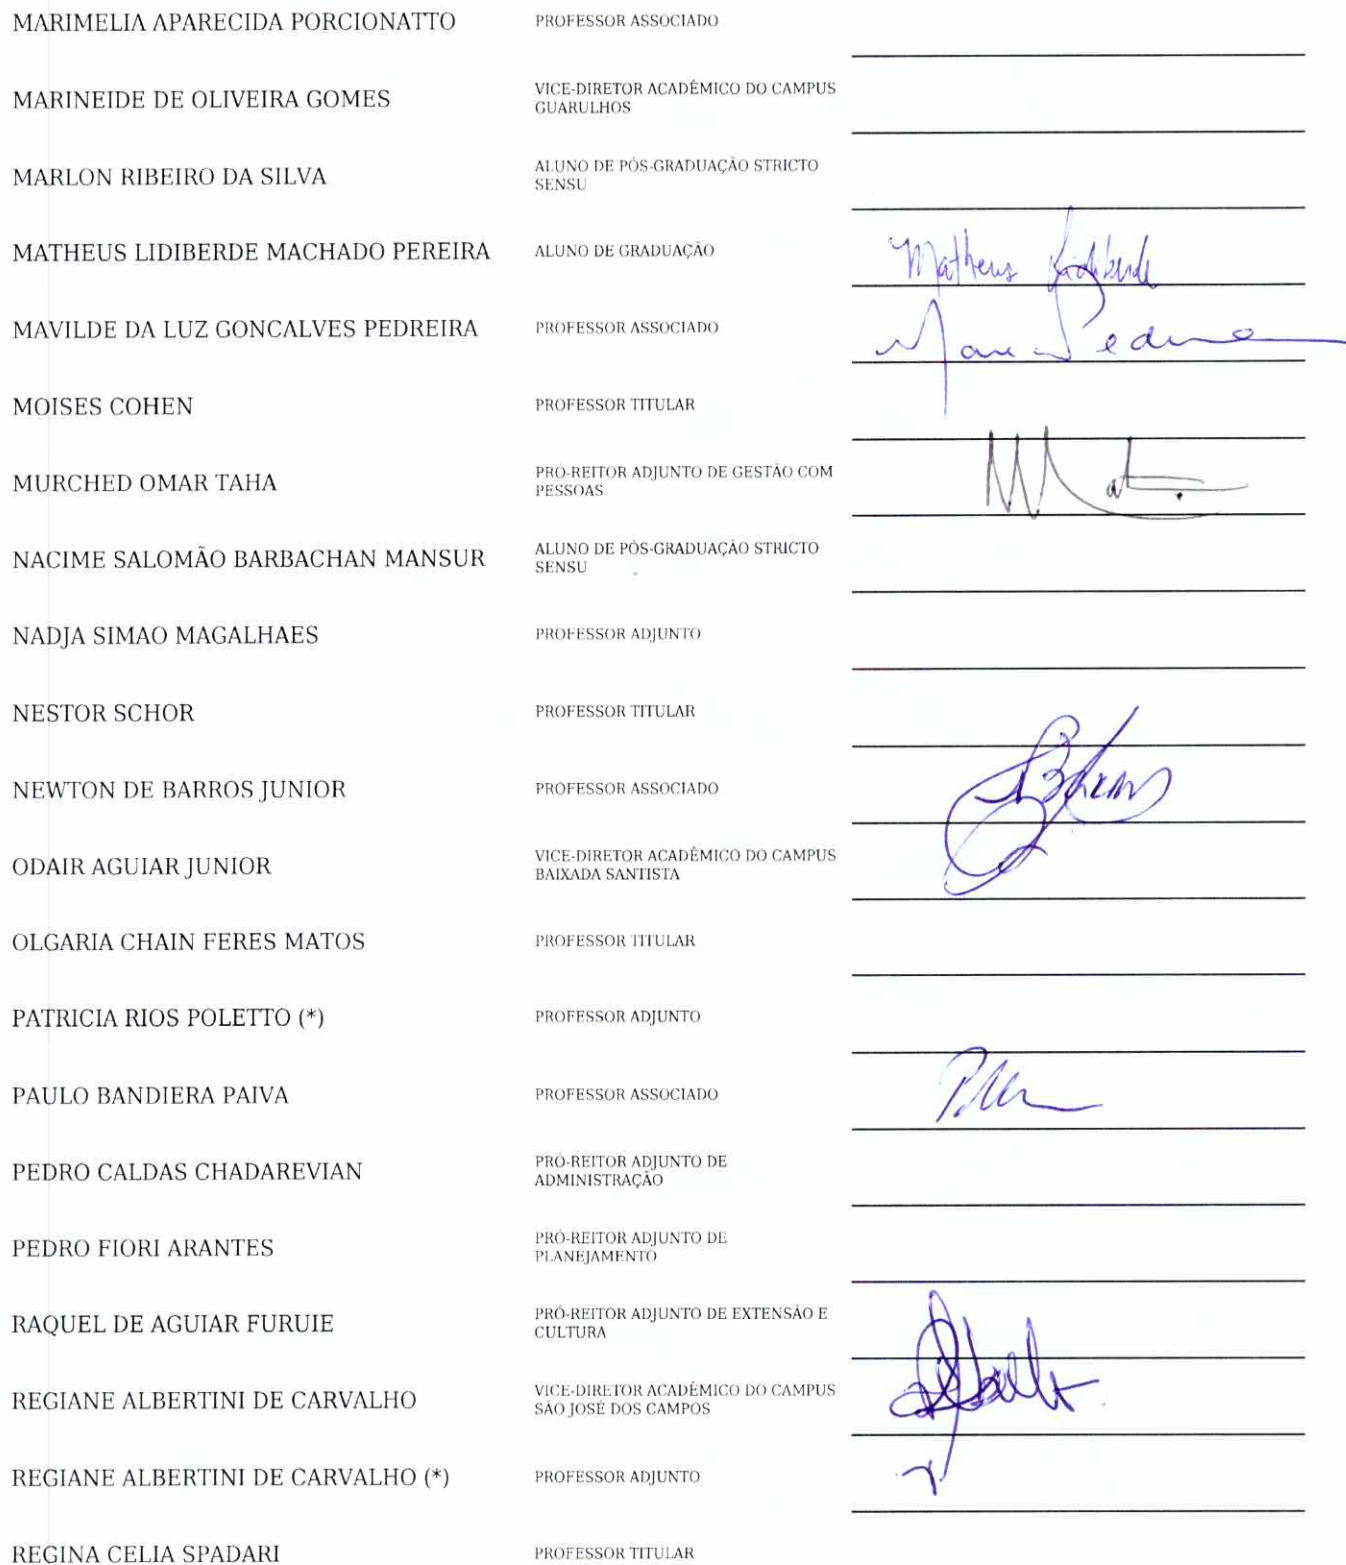 MARIMELIA APARECIDA PORCIONATTO PROFESSOR ASSOCIADO
MARINEIDE DE OLIVEIRA GOMES VICE-DIRETOR ACADÊMICO DO CAMPUS
GUARULHOS
MARLON RIBEIRO DA SILVA ALUNO DE PÓS-GRADUAÇÃO STRICTO
SENSU
MATHEUS LIDIBERDE MACHADO PEREIRA ALUNO DE GRADUAÇÃO Matheus Lidiberde
MAVILDE DA LUZ GONCALVES PEDREIRA PROFESSOR ASSOCIADO
MOISES COHEN PROFESSOR TITULAR
MURCHED OMAR TAHA PRÓ-REITOR ADJUNTO DE GESTÃO COM
PESSOAS
NACIME SALOMÃO BARBACHAN MANSUR ALUNO DE PÓS-GRADUAÇÃO STRICTO
SENSU
NADJA SIMAO MAGALHAES PROFESSOR ADJUNTO
NESTOR SCHOR PROFESSOR TITULAR
NEWTON DE BARROS JUNIOR PROFESSOR ASSOCIADO
ODAIR AGUIAR JUNIOR VICE-DIRETOR ACADÊMICO DO CAMPUS
BAIXADA SANTISTA
OLGARIA CHAIN FERES MATOS PROFESSOR TITULAR
PATRICIA RIOS POLETTO (*) PROFESSOR ADJUNTO
PAULO BANDIERA PAIVA PROFESSOR ASSOCIADO
PEDRO CALDAS CHADAREVIAN PRÓ-REITOR ADJUNTO DE
ADMINISTRAÇÃO
PEDRO FIORI ARANTES PRÓ-REITOR ADJUNTO DE
PLANEJAMENTO
RAQUEL DE AGUIAR FURUIE PRÓ-REITOR ADJUNTO DE EXTENSÃO E
CULTURA
REGIANE ALBERTINI DE CARVALHO VICE-DIRETOR ACADÊMICO DO CAMPUS
SÃO JOSÉ DOS CAMPOS
REGIANE ALBERTINI DE CARVALHO (*) PROFESSOR ADJUNTO
REGINA CELIA SPADARI PROFESSOR TITULAR